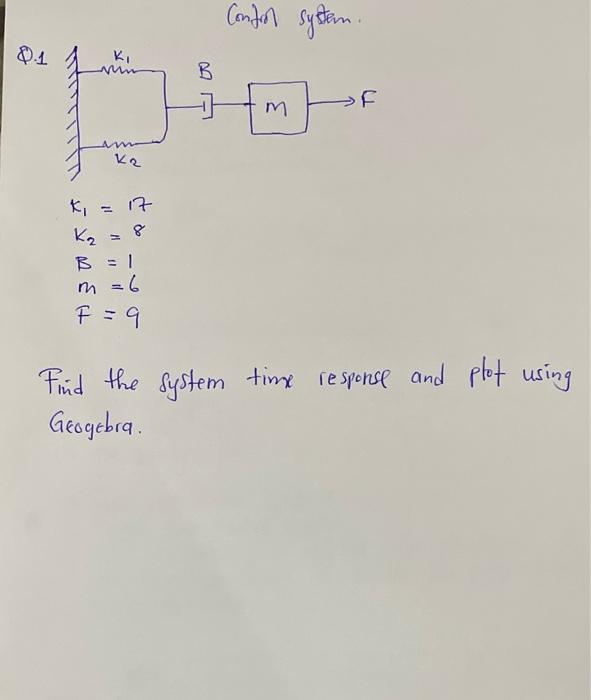 Control system.
Q.1
K1
B
m
F
K2
K1 = 17
K2 = 8
B = 1
m = 6
F = 9
Find the system time response and plot using
Geogebra.